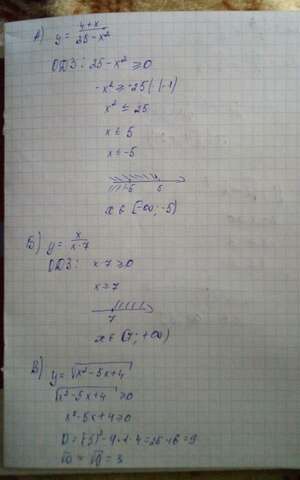 А) y = 4+x / 25-x²
ОДЗ: 25-x² ≥0
-x² ≥ -25 | (-1)
x² ≤ 25
x ≤ 5
x ≤ -5
-5 5
x ∈ [-∞; -5)
Б) y = x / x-7
ОДЗ: x-7 ≥0
x ≥ 7
7
x ∈ (7; +∞)
В) y = √x²-5x+4
√x²-5x+4 ≥0
x²-5x+4 ≥0
D = (-5)²-4·1·4=25-16=9
√D = √9 = 3